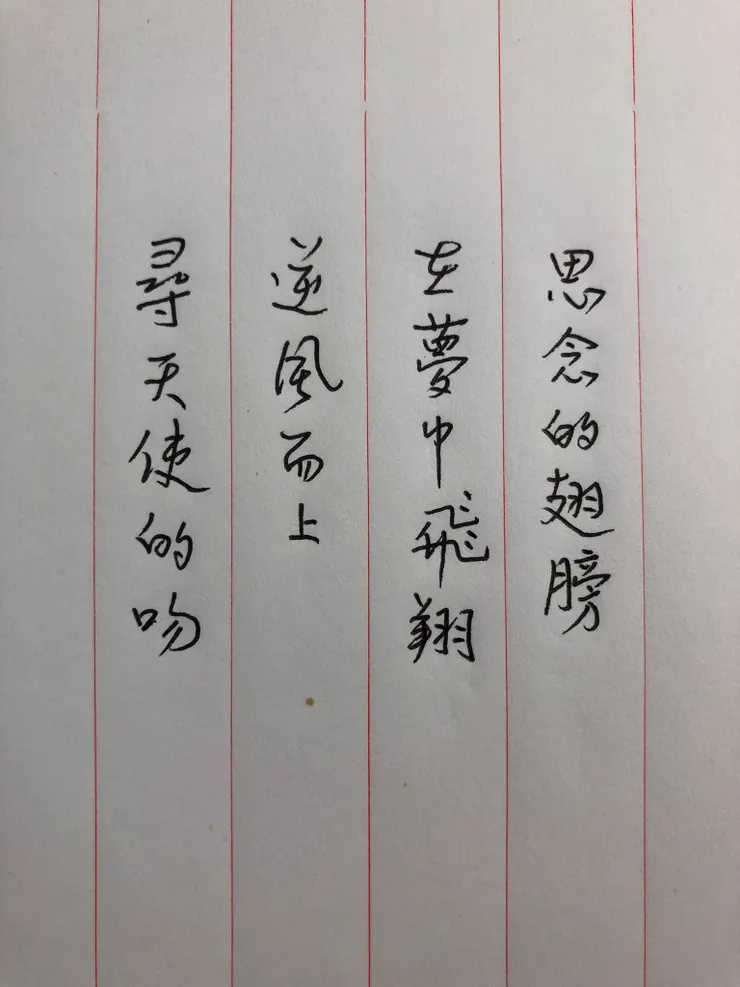 思念的翅膀
在夢中飛翔
逆風而上
尋天使的吻